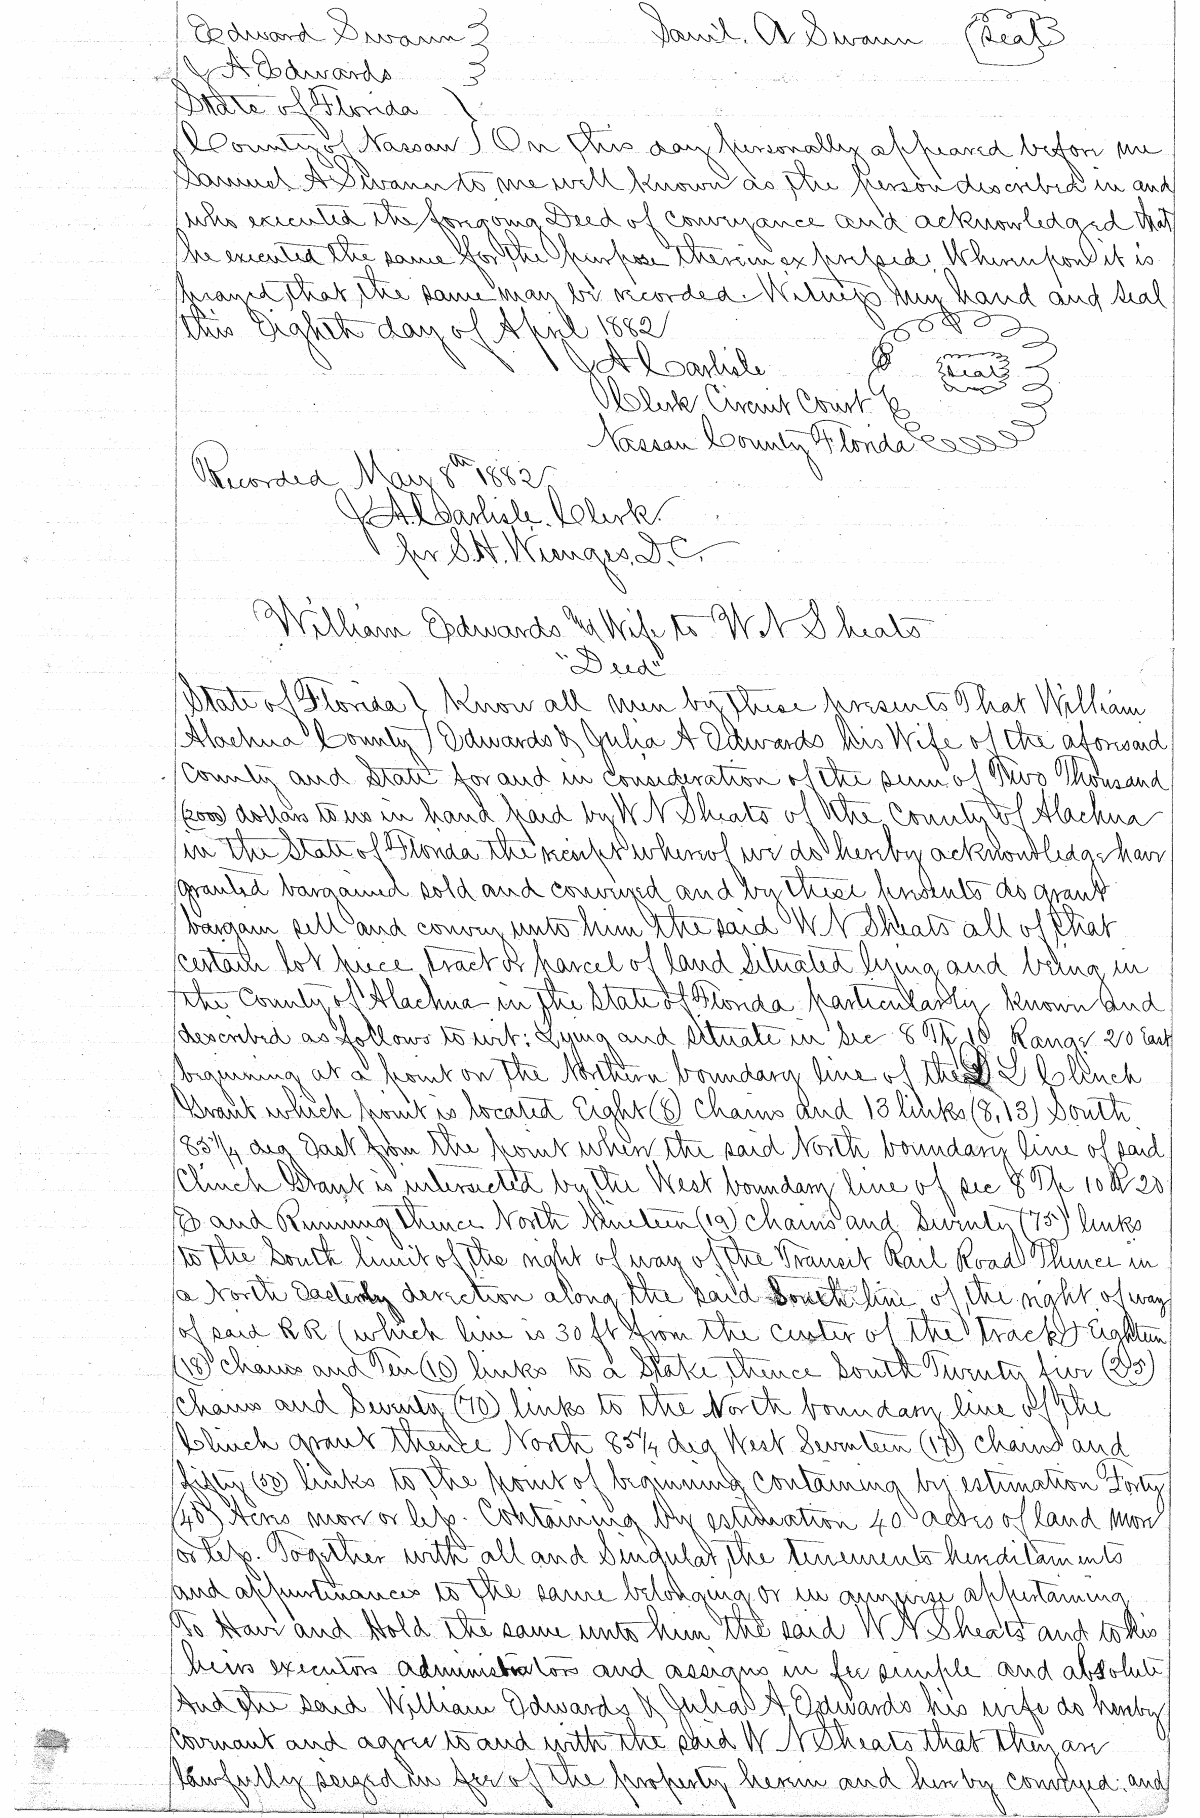 Edward Swann } Saml. A Swann (Seal)
J A Edwards }
State of Florida )
County of Nassau ) On this day personally appeared before me
Samuel A Swann to me well known as the person described in and
who executed the foregoing Deed of conveyance and acknowledged that
he executed the same for the purpose therein expressed. Whereupon it is
prayed that the same may be recorded. Witness my hand and seal
this Eighth day of April 1882
J A Carlisle
Clerk Circuit Court
Seal
Nassau County Florida
Recorded May 8th 1882
J. A. Carlisle. Clerk.
pr S. H. Wienges, D. C.
William Edwards and Wife to W N Sheats
"Deed"
State of Florida ) Know all men by these presents That William
Alachua County ) Edwards & Julia A Edwards his Wife of the aforesaid
County and State for and in consideration of the sum of Two Thousand
(2000) dollars to us in hand paid by W N Sheats of the County of Alachua
in the State of Florida the receipt whereof we do hereby acknowledge have
granted bargained sold and conveyed and by these presents do grant
bargain sell and convey unto him the said W N Sheats all of that
certain lot piece tract or parcel of land situated lying and being in
the County of Alachua in the State of Florida particularly known and
described as follows to wit: Lying and situate in Sec 8 Tp 10 Range 20 East
beginning at a point on the Northern boundary line of the D L Clinch
Grant which point is located Eight (8) chains and 13 links (8,13) South
85 1/4 deg East from the point where the said North boundary line of said
Clinch Grant is intersected by the West boundary line of sec 8 Tp 10 R 20
E and Running thence North Nineteen (19) chains and Seventy (75) links
to the South limit of the right of way of the Transit Rail Road Thence in
a North Easterly direction along the said South line of the right of way
of said R R (which line is 30 ft from the center of the track) Eighteen
(18) chains and Ten (10) links to a Stake thence South Twenty five (25)
chains and Seventy (70) links to the North boundary line of the
Clinch grant thence North 85 1/4 deg West Seventeen (17) chains and
fifty (50) links to the point of beginning containing by estimation Forty
(40) Acres more or less. Containing by estimation 40 acres of land more
or less. Together with all and Singular the tenements hereditaments
and appurtinances to the same belonging or in anywise appertaining
To Have and Hold the same unto him the said W N Sheats and to his
heirs executors administrators and assigns in fee simple and absolute
And the said William Edwards & Julia A Edwards his wife do hereby
covenant and agree to and with the said W N Sheats that they are
lawfully seized in fee of the property herein and hereby conveyed. and